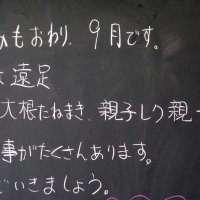 みもおわり、9月です。
遠足
大根たねまき、親子レク親
事がたくさんあります。
いきましょう。